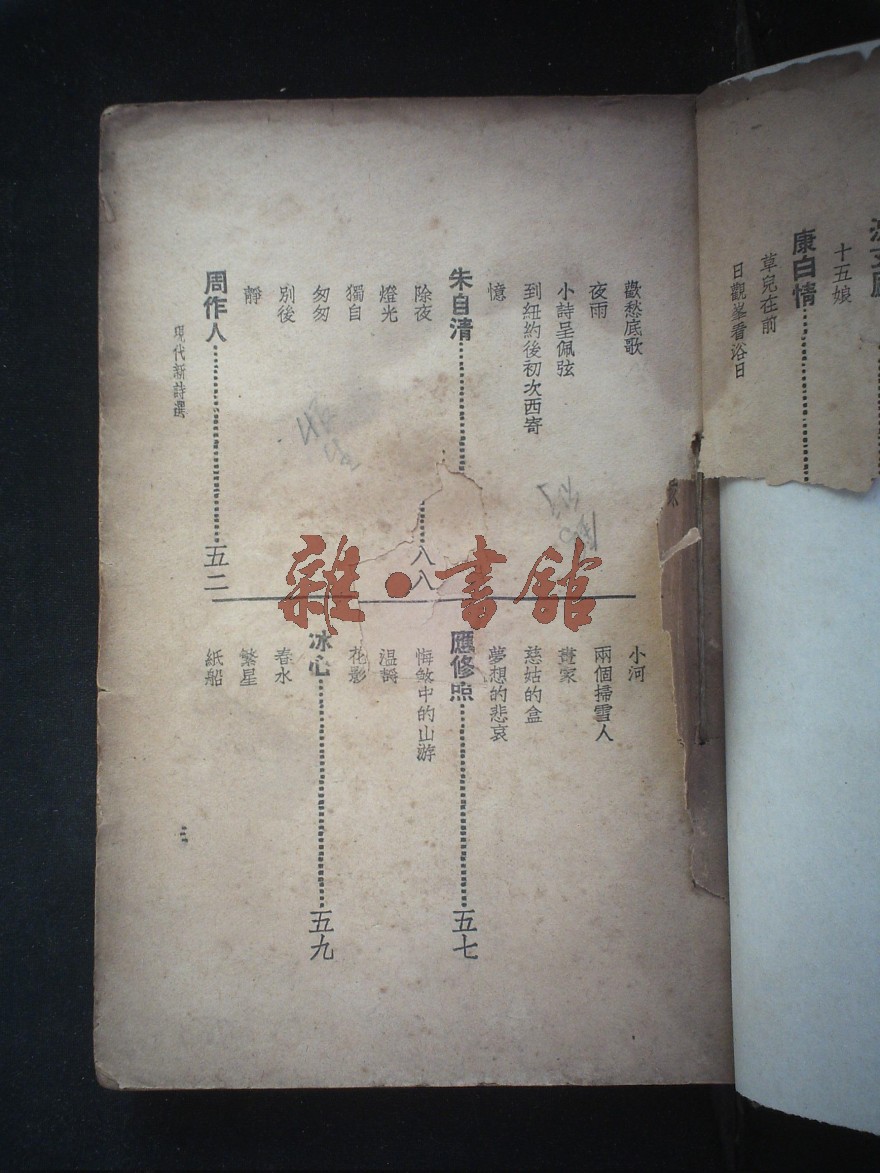 十五娘
康白情
草兒在前
日觀峯看浴日
歡愁底歌
夜雨
小詩呈佩弦
到紐約後初次西寄
憶
朱自清
除夜
八八
燈光
獨自
匆匆
別後
靜
周作人 五二
小河
兩個掃雪人
畫家
慈姑的盆
夢想的悲哀
應修 五七
悔煞中的山游
温靜
花影
冰心 五九
春水
繁星
紙船
現代新詩選
雜·書館